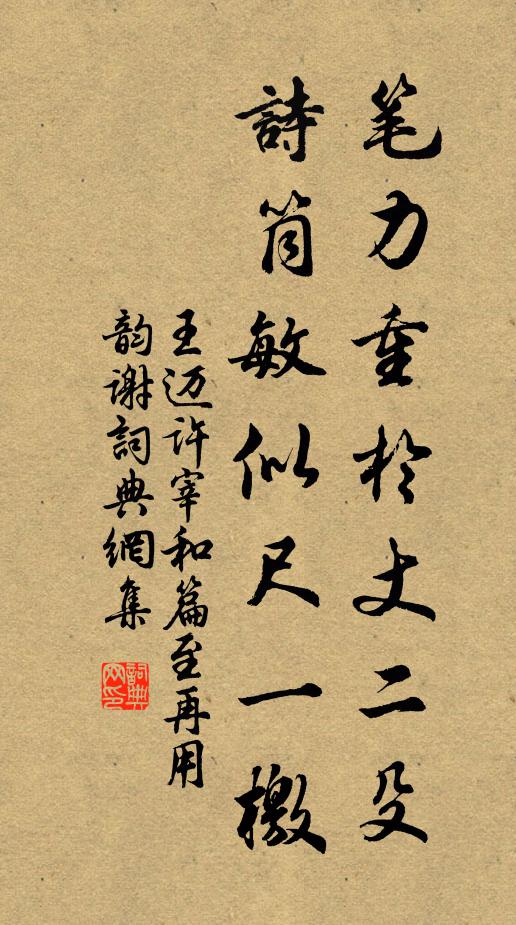 笔力重於丈二殳
詩筒敏似尺一檄
王迈许宰和篇至再用
韵谢詞典網集
詞典網印